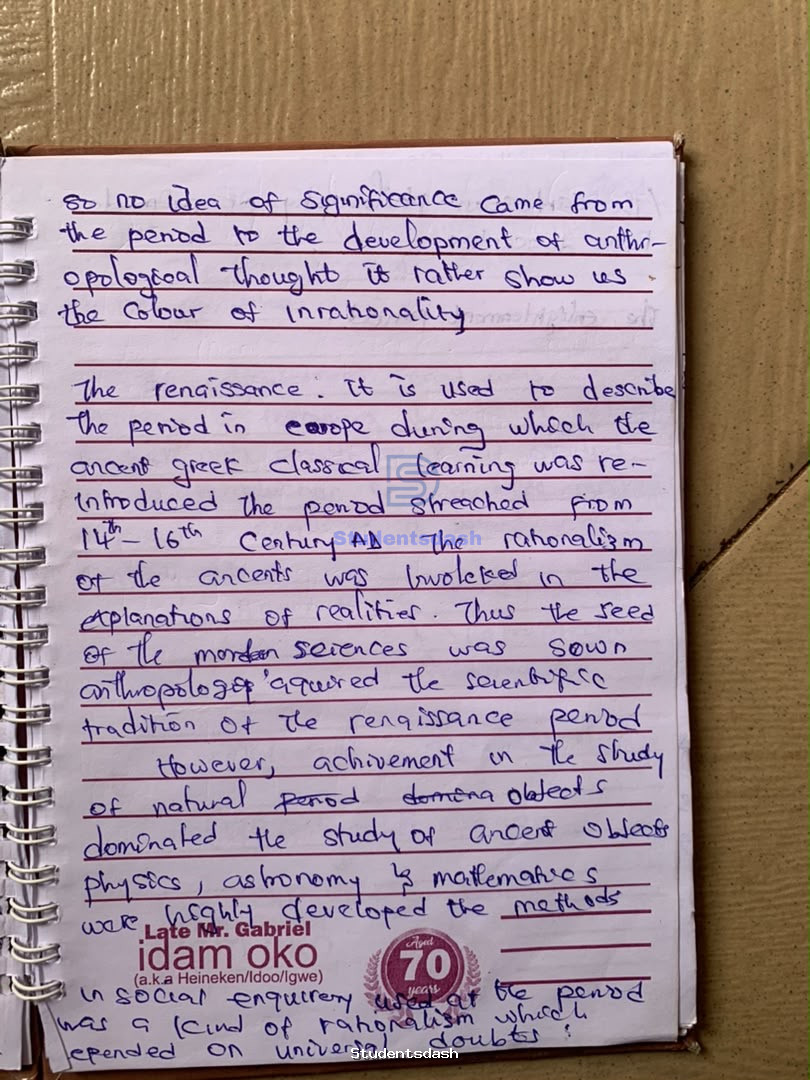 so no idea of significance came from
the period to the development of anthr-
opological thought it rather show us
the colour of inrationality
The renaissance. It is used to describe
the period in europe during which the
ancent greek classical learning was re-
introduced the period streached from
14th - 16th Century AD The rationalism
of the ancents was Invoked in the
explanations of realities. Thus the seed
of the morden seiences was sown
anthropologist aquired the scientific
tradition of the renaissance period
However, achivement in the study
of natural period domina objects
dominated the study of ancent objects
physics, astronomy & mathematics
were highly developed the methods
Late Mr. Gabriel
idam oko
(a.k.a Heineken/Idoo/Igwe)
Aged
70
years
in social enquirery used at the period
was a kind of rationalism which
epended on universal doubts.
Studentsdash
Studentsdash